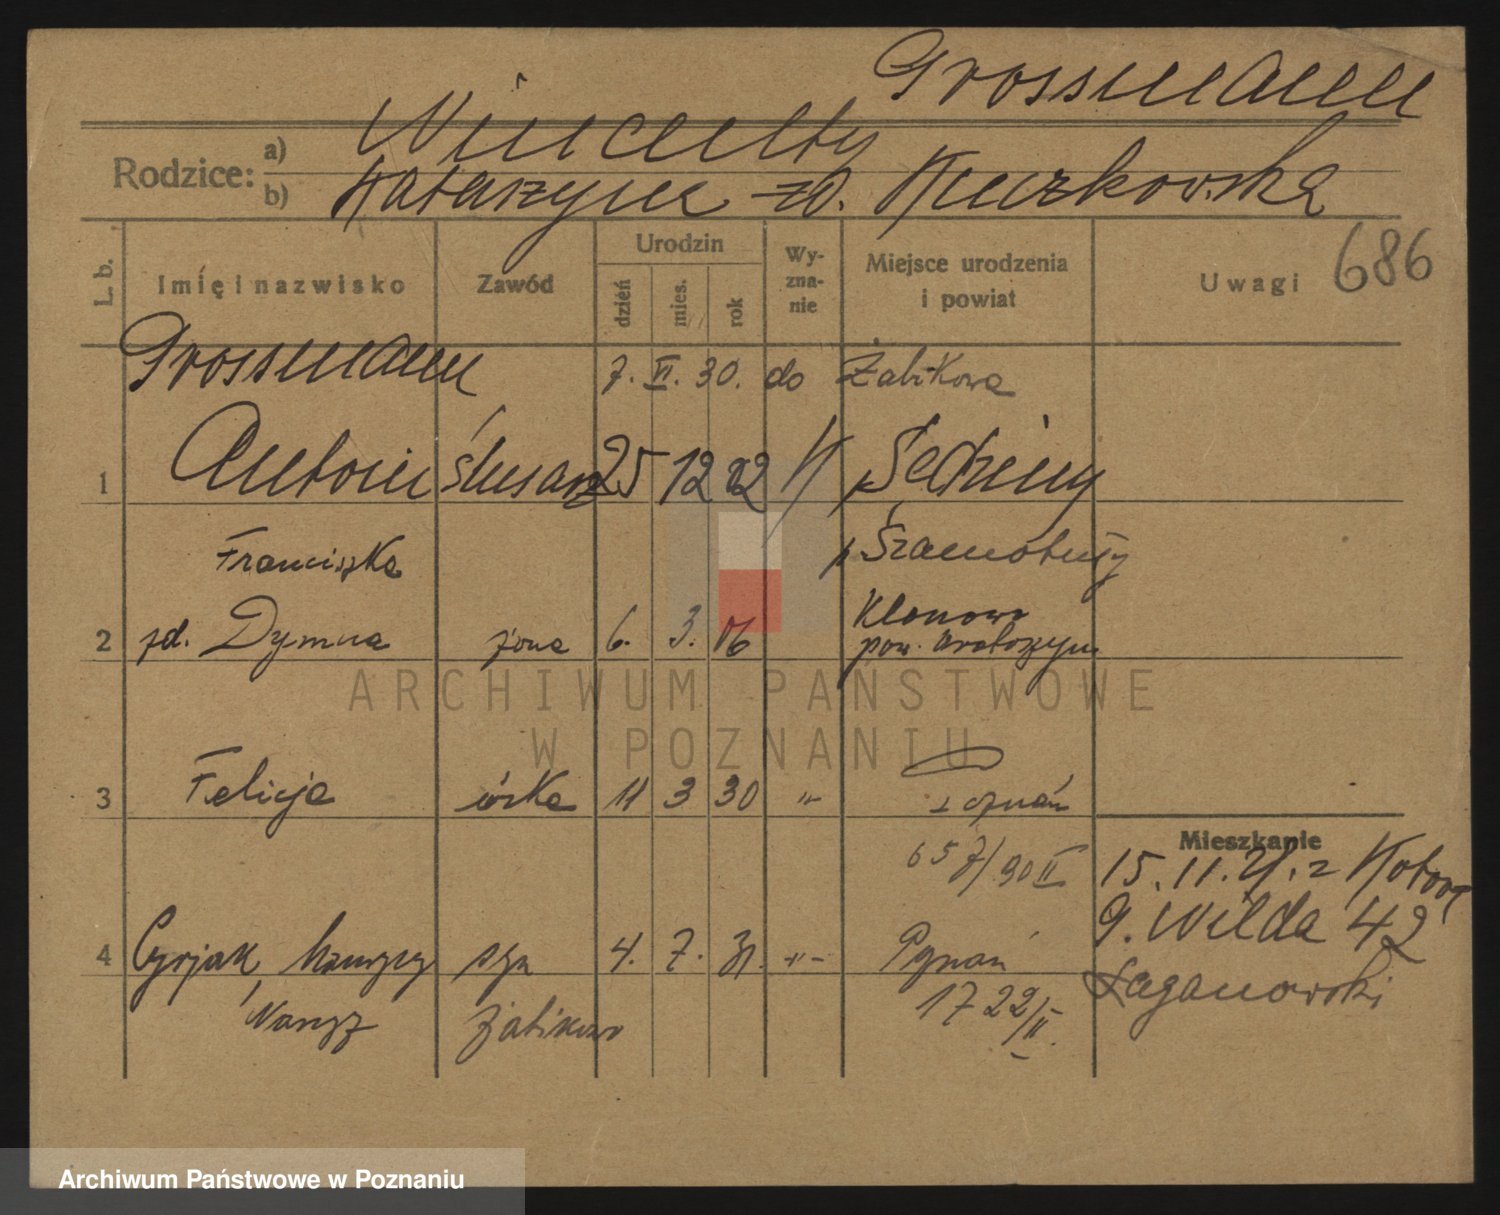 Grossmann
Rodzice: a) Wincenty
b) Katarzyna zd. Kuczkowska
L. b. Imię i nazwisko Zawód Urodzin dzień mies. rok Wy-zna-nie Miejsce urodzenia i powiat Uwagi 686
Grossmann 7. VI. 30. do Żabikowa
1 Antoni ślusarz 25 12 02 K Sędziny
p Szamotuły
Franciszka
2 zd. Dymna żona 6. 3. 06 Klonowo
pow. Krotoszyn
ARCHIWUM PAŃSTWOWE
W POZNANIU
3 Felicja córka 11 3 30 " Poznań
657/30 II
Mieszkanie
15. 11. 21. z
G. Wilda 42
Łaganowski
4 Cyrjak syn 4. 7. 31. -"- Poznań
1722/II
Żabikowo
Archiwum Państwowe w Poznaniu